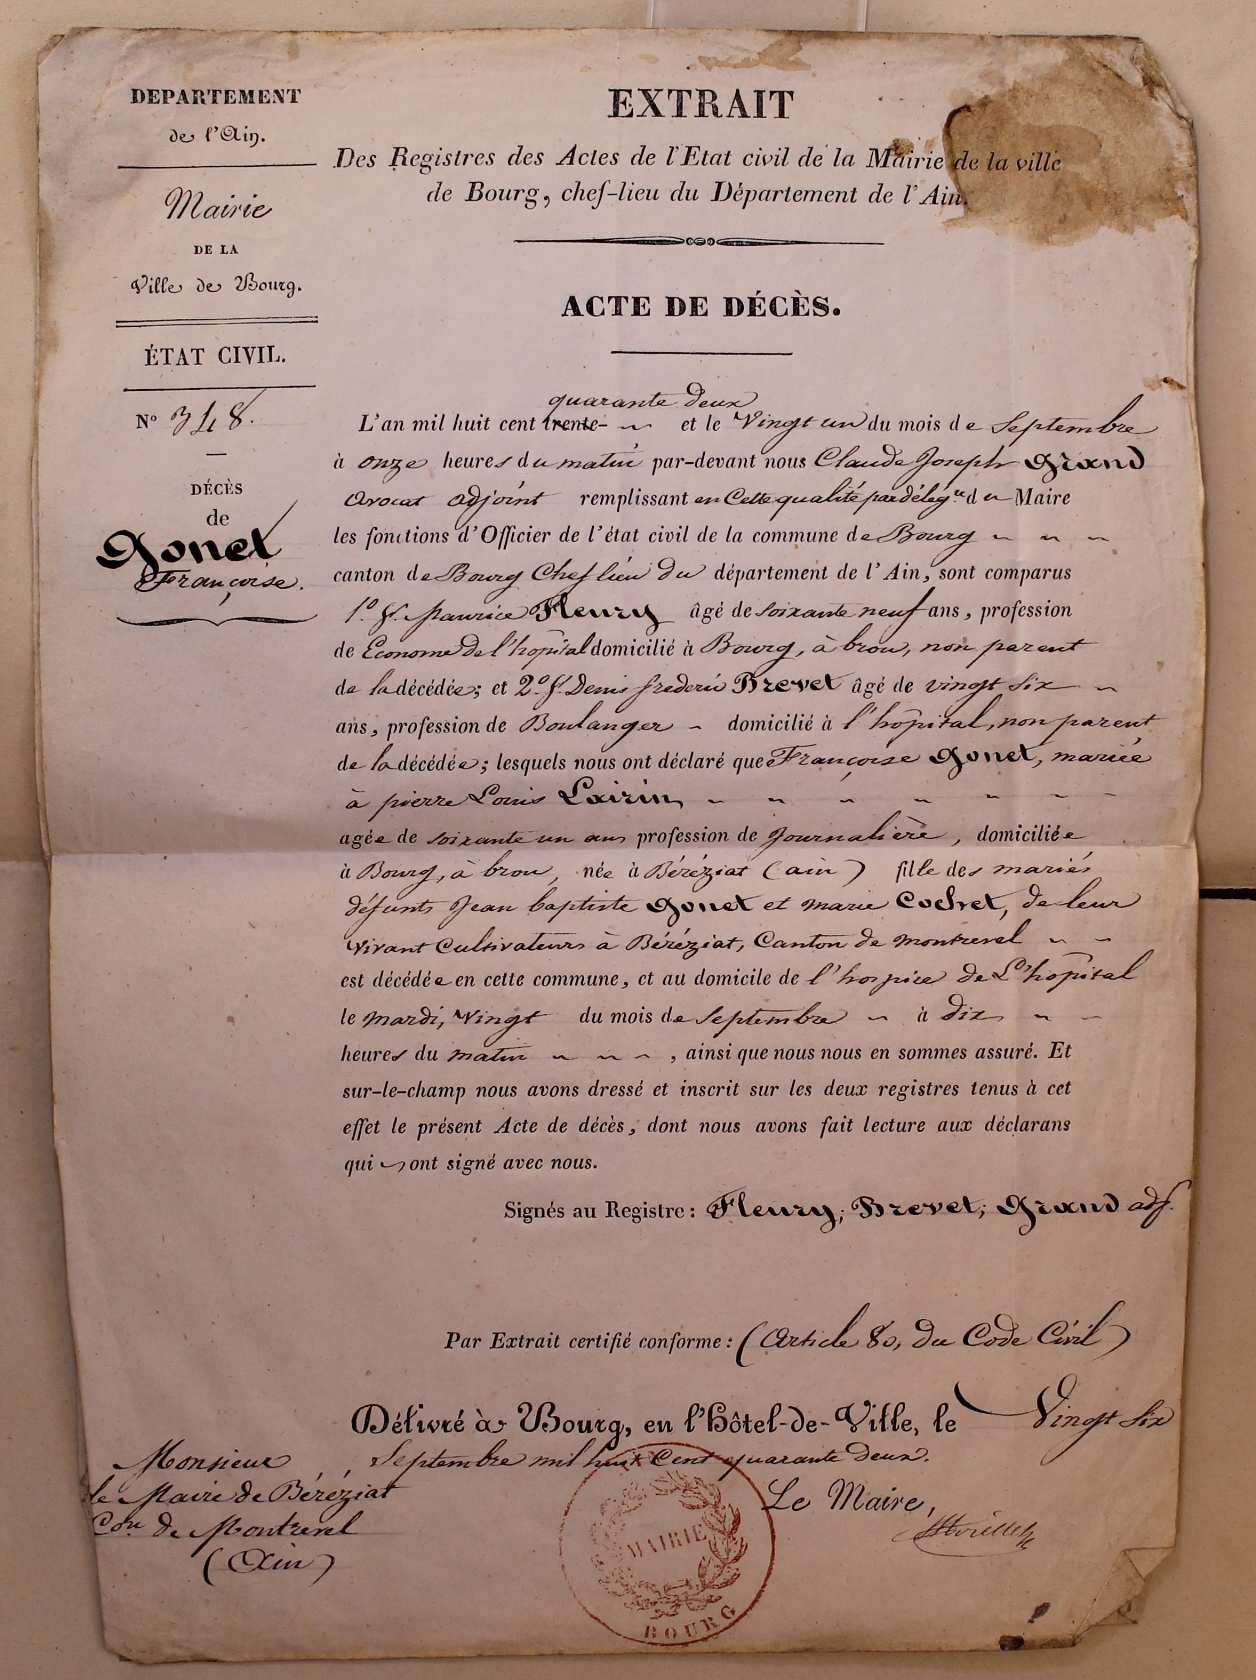 DEPARTEMENT
de l'Ain.
Mairie
DE LA
Ville de Bourg.
ÉTAT CIVIL.
Nº 348.
DÉCÈS
de
Gonet
Françoise.
EXTRAIT
Des Registres des Actes de l'Etat civil de la Mairie de la ville
de Bourg, chef-lieu du Département de l'Ain.
ACTE DE DÉCÈS.
quarante deux
L'an mil huit cent trente- et le Vingt un du mois de Septembre
à onze heures du matin par-devant nous Claude Joseph Grand
avocat adjoint remplissant en Cette qualité par délég.on du Maire
les fonctions d'Officier de l'état civil de la commune de Bourg
canton de Bourg Chef lieu du département de l'Ain, sont comparus
1º. S. Maurice Fleury âgé de soixante neuf ans, profession
de Econome de l'hopital domicilié à Bourg, à brou, non parent
de la décédée; et 2º. S. Denis frederic Brevet âgé de vingt six
ans, profession de Boulanger domicilié à l'hôpital, non parent
de la décédée; lesquels nous ont déclaré que Françoise Gonet, mariée
à pierre Louis Lairin
agée de soixante un ans profession de Journalière, domiciliée
à Bourg, à brou, née à Béréziat (ain) fille des mariés
défunts Jean baptiste Gonet et marie Cochet, de leur
vivant Cultivateurs à Béréziat, Canton de montrevel
est décédée en cette commune, et au domicile de l'hospice de L'hôpital
le mardi, Vingt du mois de Septembre à dix
heures du matin, ainsi que nous nous en sommes assuré. Et
sur-le-champ nous avons dressé et inscrit sur les deux registres tenus à cet
effet le présent Acte de décès, dont nous avons fait lecture aux déclarans
qui ont signé avec nous.
Signés au Registre: Fleury; Brevet; Grand adj.
Par Extrait certifié conforme: (Article 80, du Code Civil)
Délivré à Bourg, en l'Hôtel-de-Ville, le Vingt six
Septembre mil huit Cent quarante deux.
Le Maire,
Monsieur
le Maire de Béréziat
Con de Montrevel
(Ain)
MAIRIE
BOURG